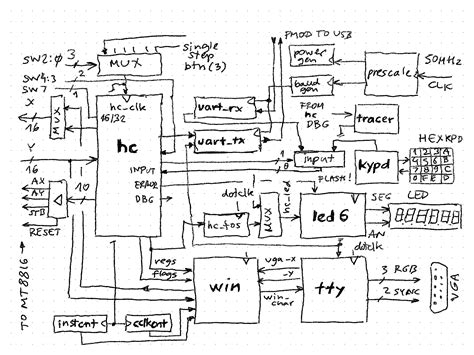 single
step
btn(3)
PMOD TO USB
SW2:0 3
2
MUX
power
gen
prescale
50MHz
CLK
SW4:3
SW7
1
hc_clk
16/32
baud
gen
X
16
MUX
uart_rx
FROM
hc
DBG
tracer
hc
uart_tx
HEXKPD
1 2 3 A
4 5 6 B
7 8 9 C
0 F E D
Y
16
INPUT
1
8
input
kypd
AX
AY
STB
RESET
10
ERROR
DBG
FLASH!
dotclk
hc_led
hc_fos
MUX
led 6
SEG
AN
LED
dotclk
TO MT8816
regs
flags
win
vga-x
-y
win_
char
tty
3 RGB
2 SYNC
VGA
instcnt
clkcnt